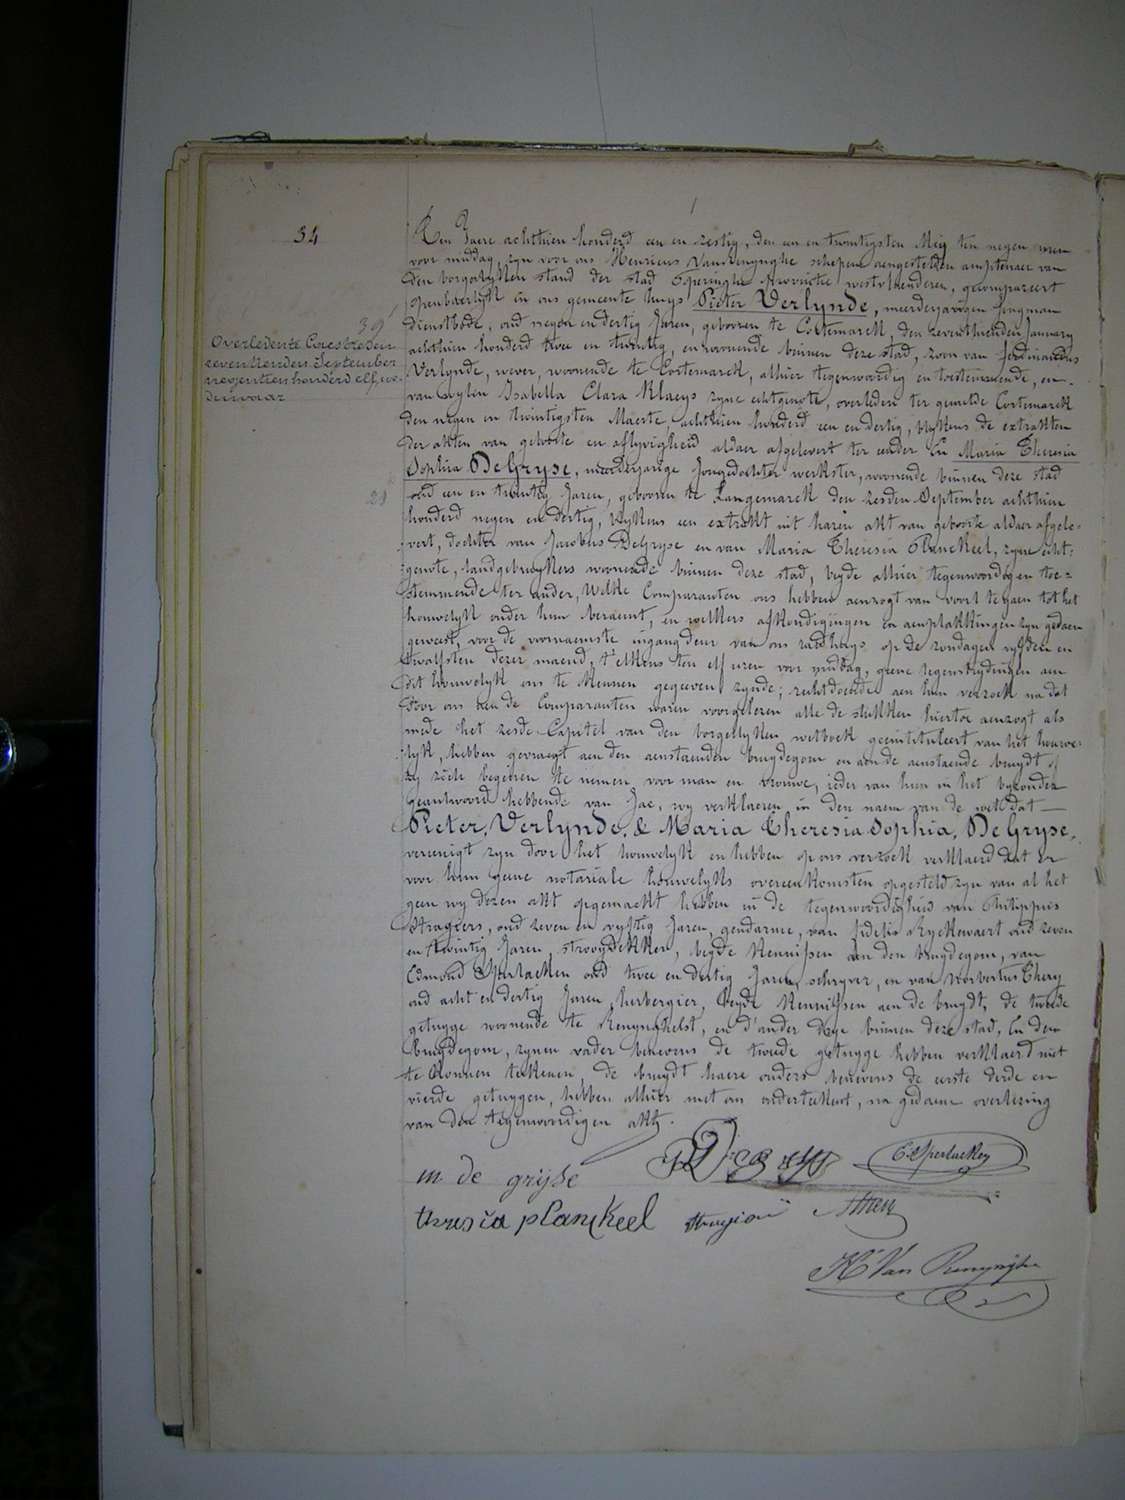 34
Den Jaere achthien honderd een en zestig, den een en twintigsten Mey ten negen uren
voor middag, zyn voor ons Henricus Vanrenynghe schepene aengestelden amptenaer van
den borgerlyken stand der stad Operinghe Provincie westvlaenderen, gecompareert
openbaerlyk in ons gemeente huys Pieter Verlynde, meerderjarigen Jongman
dienstbode, oud negen en dertig Jaren, geboren te Cortemarck, den zeventhienden January
achthien honderd twee en twintig, en woonende binnen deze stad, zoon van Ferdinandus
Verlynde, wever, woonende te Cortemarck, alhier tegenwoordig en toestemmende, en
van wylen Isabella Clara Klaeys zyne echtgenote, overleden ter gemelde Cortemarck
den negen en twintigsten Maerte, achthien honderd een en dertig, blykens de extrakten
der akten van geboorte en aflyvigheid aldaer afgelevert ter eender En Maria Theresia
Sophia DeGryse, meerderjarige Jongedochter werkster, woonende binnen deze stad
oud een en twintig Jaren, gebooren te Langemarck den zesden September achthien
honderd negen en dertig, blykens een extrakt uit haren akt van geboorte aldaer afgele-
vert, dochter van Jacobus DeGryse en van Maria Theresia Planckeel, zyne echt-
genote, landgebruykers woonende binnen deze stad, beyde alhier tegenwoordig en toe-
stemmende ter ander, Welke Comparanten ons hebben aenzogt van voort te gaen tot het
houwelyk onder hun beraemt, en welkers afkondigingen en aenplakkingen zyn gedaen
geweest, voor de voornaemste ingangdeur van ons raedhuys op de zondagen vyfden en
twalfsten dezer maend, t'elkens ten elf uren voor middag, geene tegenstrydingen aen
dit houwelyk ons te kennen gegeeven zynde; rechtdoende aen hun verzoek na dat
door ons aen de Comparanten waren voorgelezen alle de stukken hiertoe aenzogt als
mede het zesde Capitel van den borgerlyken wetboek geintituleert van het houwe-
lyk, hebben gevraegt aen den aenstaenden bruydegom en aen de aenstaende bruydt of
zy zich begeiren te nemen voor man en vrouwe, ieder van hun in het byzonder
geantwoord hebbende van Jae, wy verklaeren in den naem van de wet dat
Pieter, Verlynde, & Maria Theresia Sophia, DeGryse,
vereenigt zyn door het houwelyk en hebben op ons verzoek verklaerd dat er
voor hun geene notariale houwelyks overeenkomsten opgesteld zyn van al het
geen wy dezen akt opgemaekt hebben in de tegenwoordigheid van Philippus
Stragiers, oud zeven en vyftig Jaren, gendarme, van Fidelis Ryckewaert oud zeven
en twintig Jaren, strooydekker, beyde kennissen aen den bruydegom, van
Edmond Sperlaeken oud twee en dertig Jaren, schryver, en van Norbertus Thery
oud acht en dertig Jaren herbergier, beyde kennissen aen de bruydt, de tweede
getuyge woonende te Renynghelst, en d'ander drye binnen deze stad. En den
bruydegom, zynen vader benevens de tweede getuyge hebben verklaerd niet
te konnen teekenen, de bruydt haere ouders benevens de eerste derde en
vierde getuygen, hebben alhier met ons onderteekent, na gedaene overlezing
van den tegenwoordigen akt.
39
Overleden te Caestre den
zeventienden September
negentien honderd elf
21
m de gryse
theresia planckeel
H Van Renynghe